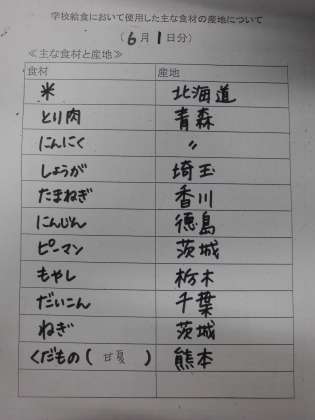 学校給食において使用した主な食材の産地について
(6月1日分)
≪主な食材と産地≫
食材 産地
米 北海道
とり肉 青森
にんにく 〃
しょうが 埼玉
たまねぎ 香川
にんじん 徳島
ピーマン 茨城
もやし 栃木
だいこん 千葉
ねぎ 茨城
くだもの(甘夏) 熊本